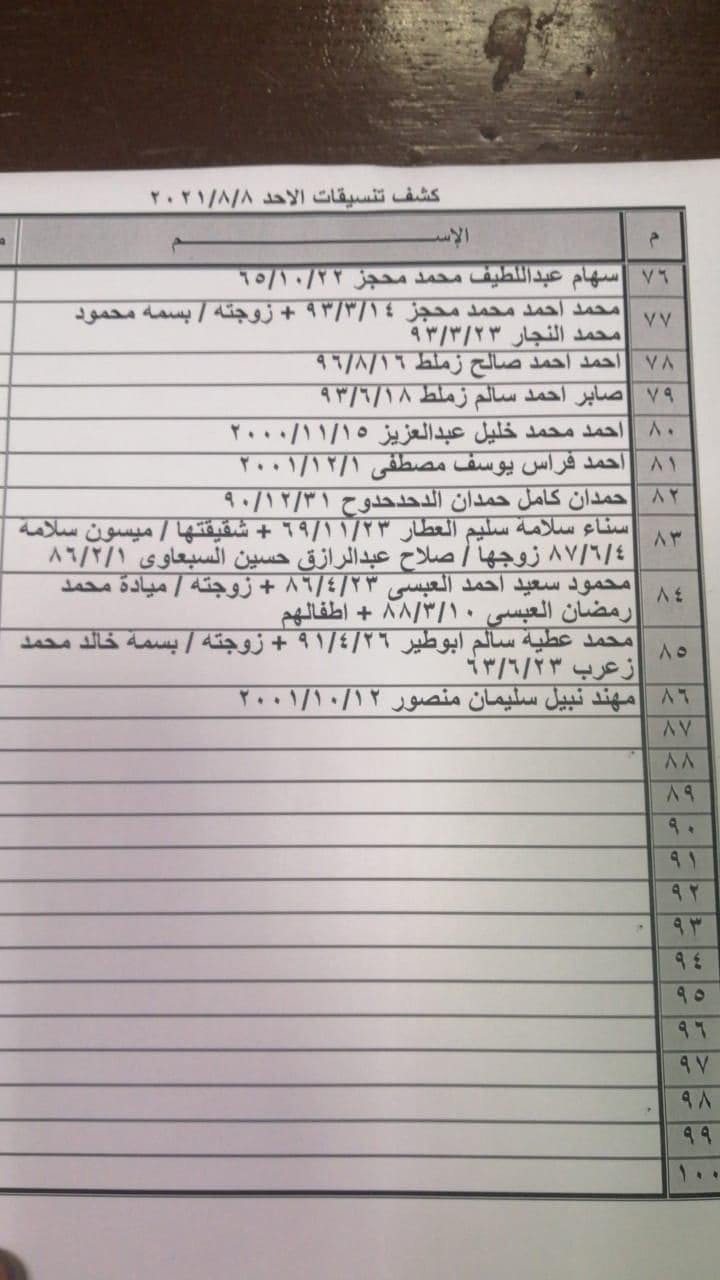 كشف تنسيقات الاحد ٢٠٢١/٨/٨
م الإســـــــــم م
٧٦ سهام عبداللطيف محمد محجز ٦٥/١٠/٢٢
٧٧ محمد احمد محمد محجز ٩٣/٣/١٤ + زوجته / بسمه محمود
محمد النجار ٩٣/٣/٢٣
٧٨ احمد احمد صالح زملط ٩٦/٨/١٦
٧٩ صابر احمد سالم زملط ٩٣/٦/١٨
٨٠ احمد محمد خليل عبدالعزيز ٢٠٠٠/١١/١٥
٨١ احمد فراس يوسف مصطفى ٢٠٠١/١٢/١
٨٢ حمدان كامل حمدان الدحدحدوح ٩٠/١٢/٣١
٨٣ سناء سلامة سليم العطار ٦٩/١١/٢٣ + شقيقتها / ميسون سلامة
٨٧/٦/٤ زوجها / صلاح عبدالرازق حسين السبعاوى ٨٦/٢/١
٨٤ محمود سعيد احمد العبسى ٨٦/٤/٢٣ + زوجته / ميادة محمد
رمضان العبسى ٨٨/٣/١٠ + اطفالهم
٨٥ محمد عطية سالم ابوطير ٩١/٤/٢٦ + زوجته / بسمة خالد محمد
زعرب ٦٣/٦/٢٣
٨٦ مهند نبيل سليمان منصور ٢٠٠١/١٠/١٢
٨٧
٨٨
٨٩
٩٠
٩١
٩٢
٩٣
٩٤
٩٥
٩٦
٩٧
٩٨
٩٩
١٠٠